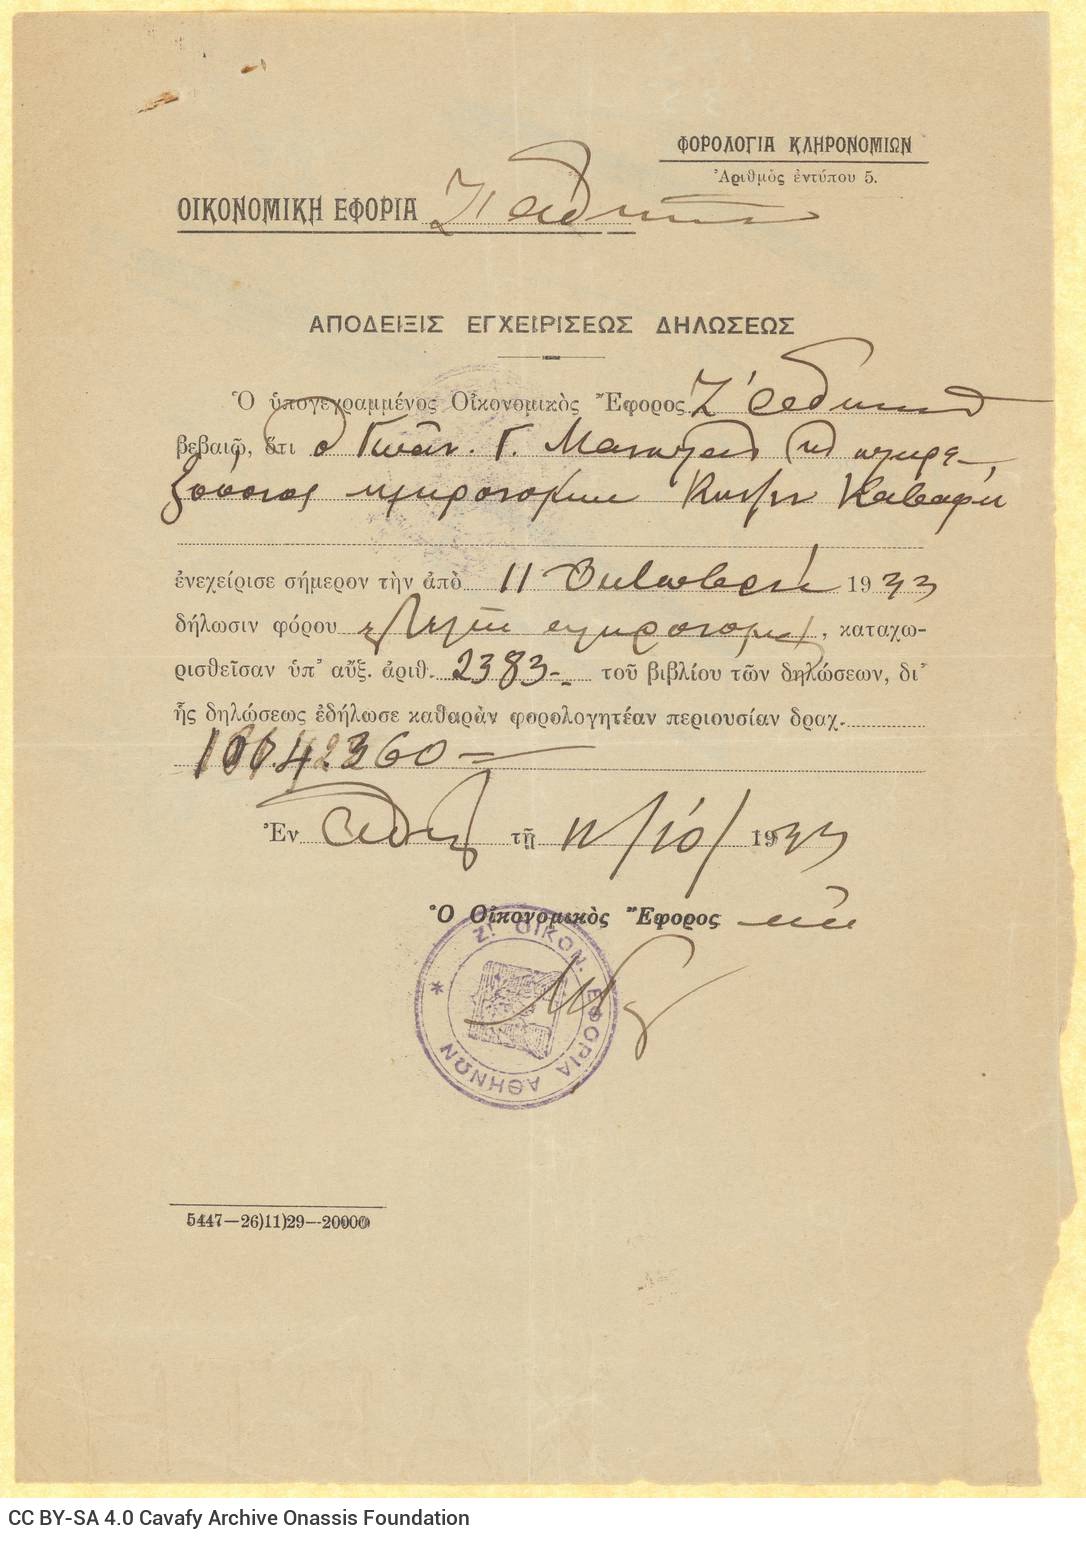 ΦΟΡΟΛΟΓΙΑ ΚΛΗΡΟΝΟΜΙΩΝ
Ἀριθμὸς ἐντύπου 5.
ΟΙΚΟΝΟΜΙΚΗ ΕΦΟΡΙΑ Ζ' Ἀθηνῶν
ΑΠΟΔΕΙΞΙΣ ΕΓΧΕΙΡΙΣΕΩΣ ΔΗΛΩΣΕΩΣ
Ὁ ὑπογεγραμμένος Οἰκονομικὸς Ἔφορος Ζ' Ἀθηνῶν
βεβαιῶ, ὅτι ὁ Γ.
κληρονομίαν Κων/νου Καβάφη
ἐνεχείρισε σήμερον τὴν ἀπὸ 11 Ὀκτωβρίου 1933
δήλωσιν φόρου κληρονομίας, καταχω-
ρισθεῖσαν ὑπ' αὔξ. ἀριθ. 2383 τοῦ βιβλίου τῶν δηλώσεων, δι'
ἧς δηλώσεως ἐδήλωσε καθαρὰν φορολογητέαν περιουσίαν δραχ.
Ἐν Ἀθήναις τῇ 11/10/1933
Ὁ Οἰκονομικὸς Ἔφορος
Ζ'. ΟΙΚΟΝ. ΕΦΟΡΙΑ ΑΘΗΝΩΝ *
5447—26)11)29—20000
CC BY-SA 4.0 Cavafy Archive Onassis Foundation